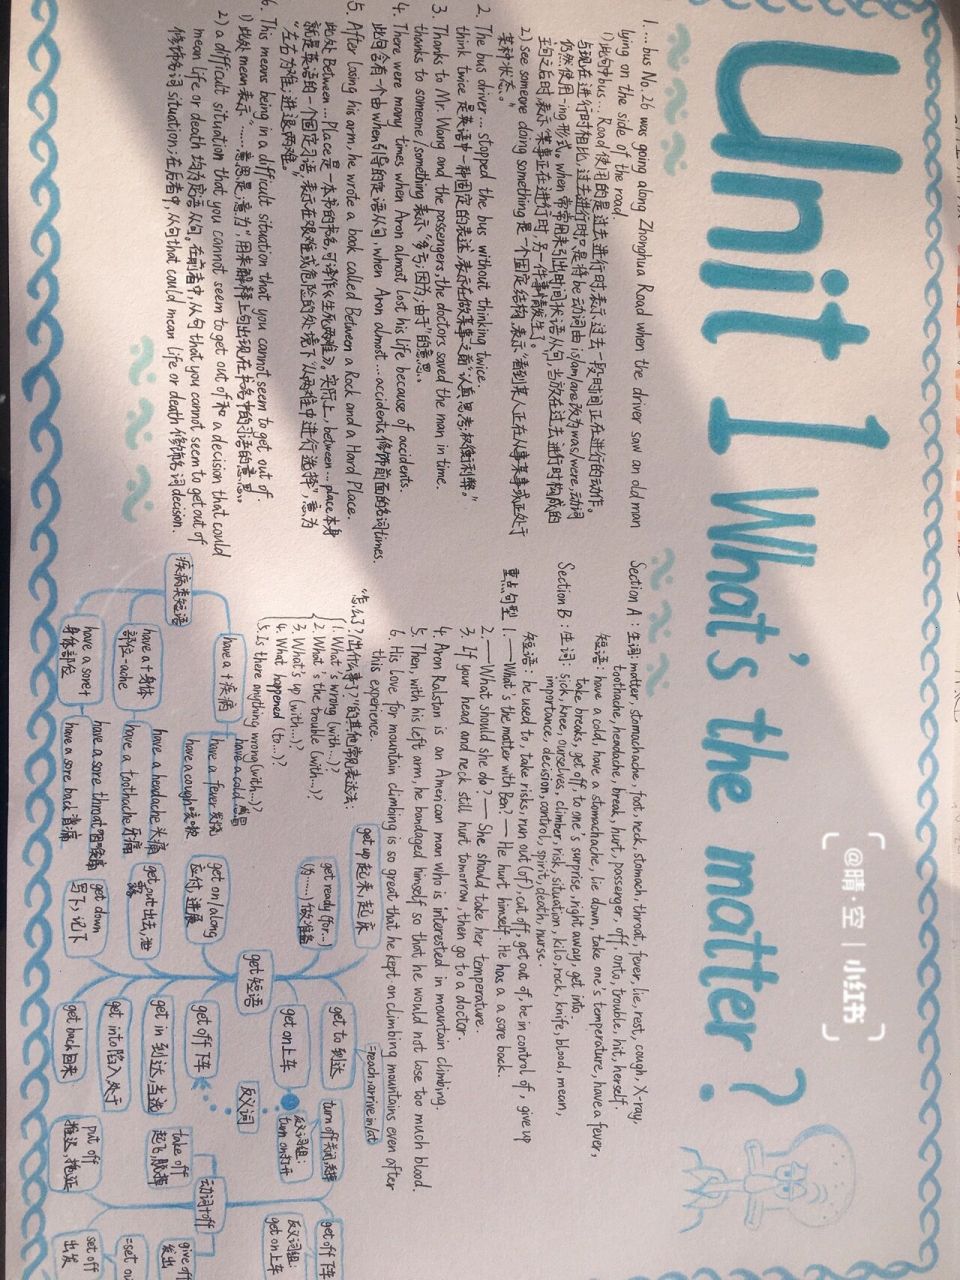 Unit 1 What's the matter?
1. ...bus No.26 was going along Zhonghua Road when the driver saw an old man
lying on the side of the road.
1) 此句中bus...Road使用的是过去进行时,表示过去一段时间正在进行的动作。
与现在进行时相比,过去进行时只是将be动词由is/am/are改为was/were,动词
仍然使用-ing形式。when常常用来引出时间状语从句,当放在过去进行时构成的
主句之后时,表示"某事正在进行时,另一件事情发生了。
2) see someone doing something是一个固定结构,表示"看到某人正在从事某事或正处于
某种状态。"
2. The bus driver... stopped the bus without thinking twice.
think twice 是英语中一种固定的表述,表示在做某事之前"认真思考;权衡利弊。"
3. Thanks to Mr. Wang and the passengers, the doctors saved the man in time.
thanks to someone/something表示"多亏,因为,由于"的意思。
4. There were many times when Aron almost lost his life because of accidents.
此句含有一个由when引导的定语从句,when Aron almost...accidents修饰前面的名词times.
5. After losing his arm, he wrote a book called Between a Rock and a Hard Place.
此处Between...Place是一本书的书名,可译作《生死两难》。实际上,between...place本身
就是英语的一个固定习语,表示在艰难或危险的处境下"从两难中进行选择",意为
"左右为难;进退两难。
6. This means being in a difficult situation that you cannot seem to get out of.
1) 此处mean表示"......意思是;意为",用来解释上句出现在书名中的习语的意思。
2) a difficult situation that you cannot seem to get out of和a decision that could
mean life or death 均为定语从句。在前者中,从句that you cannot seem to get out of
修饰名词situation;在后者中,从句that could mean life or death修饰名词decision.
Section A: 生词: matter, stomachache, foot, neck, stomach, throat, fever, lie, rest, cough, X-ray,
toothache, headache, break, hurt, passenger, off, onto, trouble, hit, herself.
短语: have a cold, have a stomachache, lie down, take one's temperature, have a fever,
take breaks, get off, to one's surprise, right away, get into
Section B: 生词: sick, knee, ourselves, climber, risk, situation, kilo, rock, knife, blood, mean,
importance, decision, control, spirit, death, nurse.
短语: be used to, take risks, run out (of), cut off, get out of, be in control of, give up
重点句型 1. ——What's the matter with Ben? — He hurt himself. He has a sore back.
2. ——What should she do? — She should take her temperature.
3. If your head and neck still hurt tomorrow, then go to a doctor.
4. Aron Ralston is an American man who is interested in mountain climbing.
5. Then, with his left arm, he bandaged himself so that he would not lose too much blood.
6. His love for mountain climbing is so great that he kept on climbing mountains even after
this experience.
"怎么了?/出什么事了?"的其他常见表达法:
1. What's wrong (with...)?
2. What's the trouble (with...)?
3. What's up (with...)?
4. What happened (to...)?
5. Is there anything wrong (with...)?
疾病类短语
have a + 疾病
have a cold 感冒
have a fever 发烧
have a cough 咳嗽
have a + 身体
部位-ache
have a headache 头痛
have a toothache 牙痛
have a sore +
身体部位
have a sore throat 咽喉痛
have a sore back 背痛
get 短语
get up 起床
get ready (for...)
get on/along
应付,进展
get out 出去,泄
露
get down
写下,记下
get to 到达
=reach, arrive in/at
get on 上车
get off 下车
get in 到达,当选
get into 陷入,处于
get back 回来
反义词
动词+off
turn off 关闭
反义词组:
turn on 打开
take off
起飞,脱掉
put off
推迟,拖延
get off 下车
反义词组:
get on 上车
give off
发出
set off
出发
=set
@晴·空 | 小红书